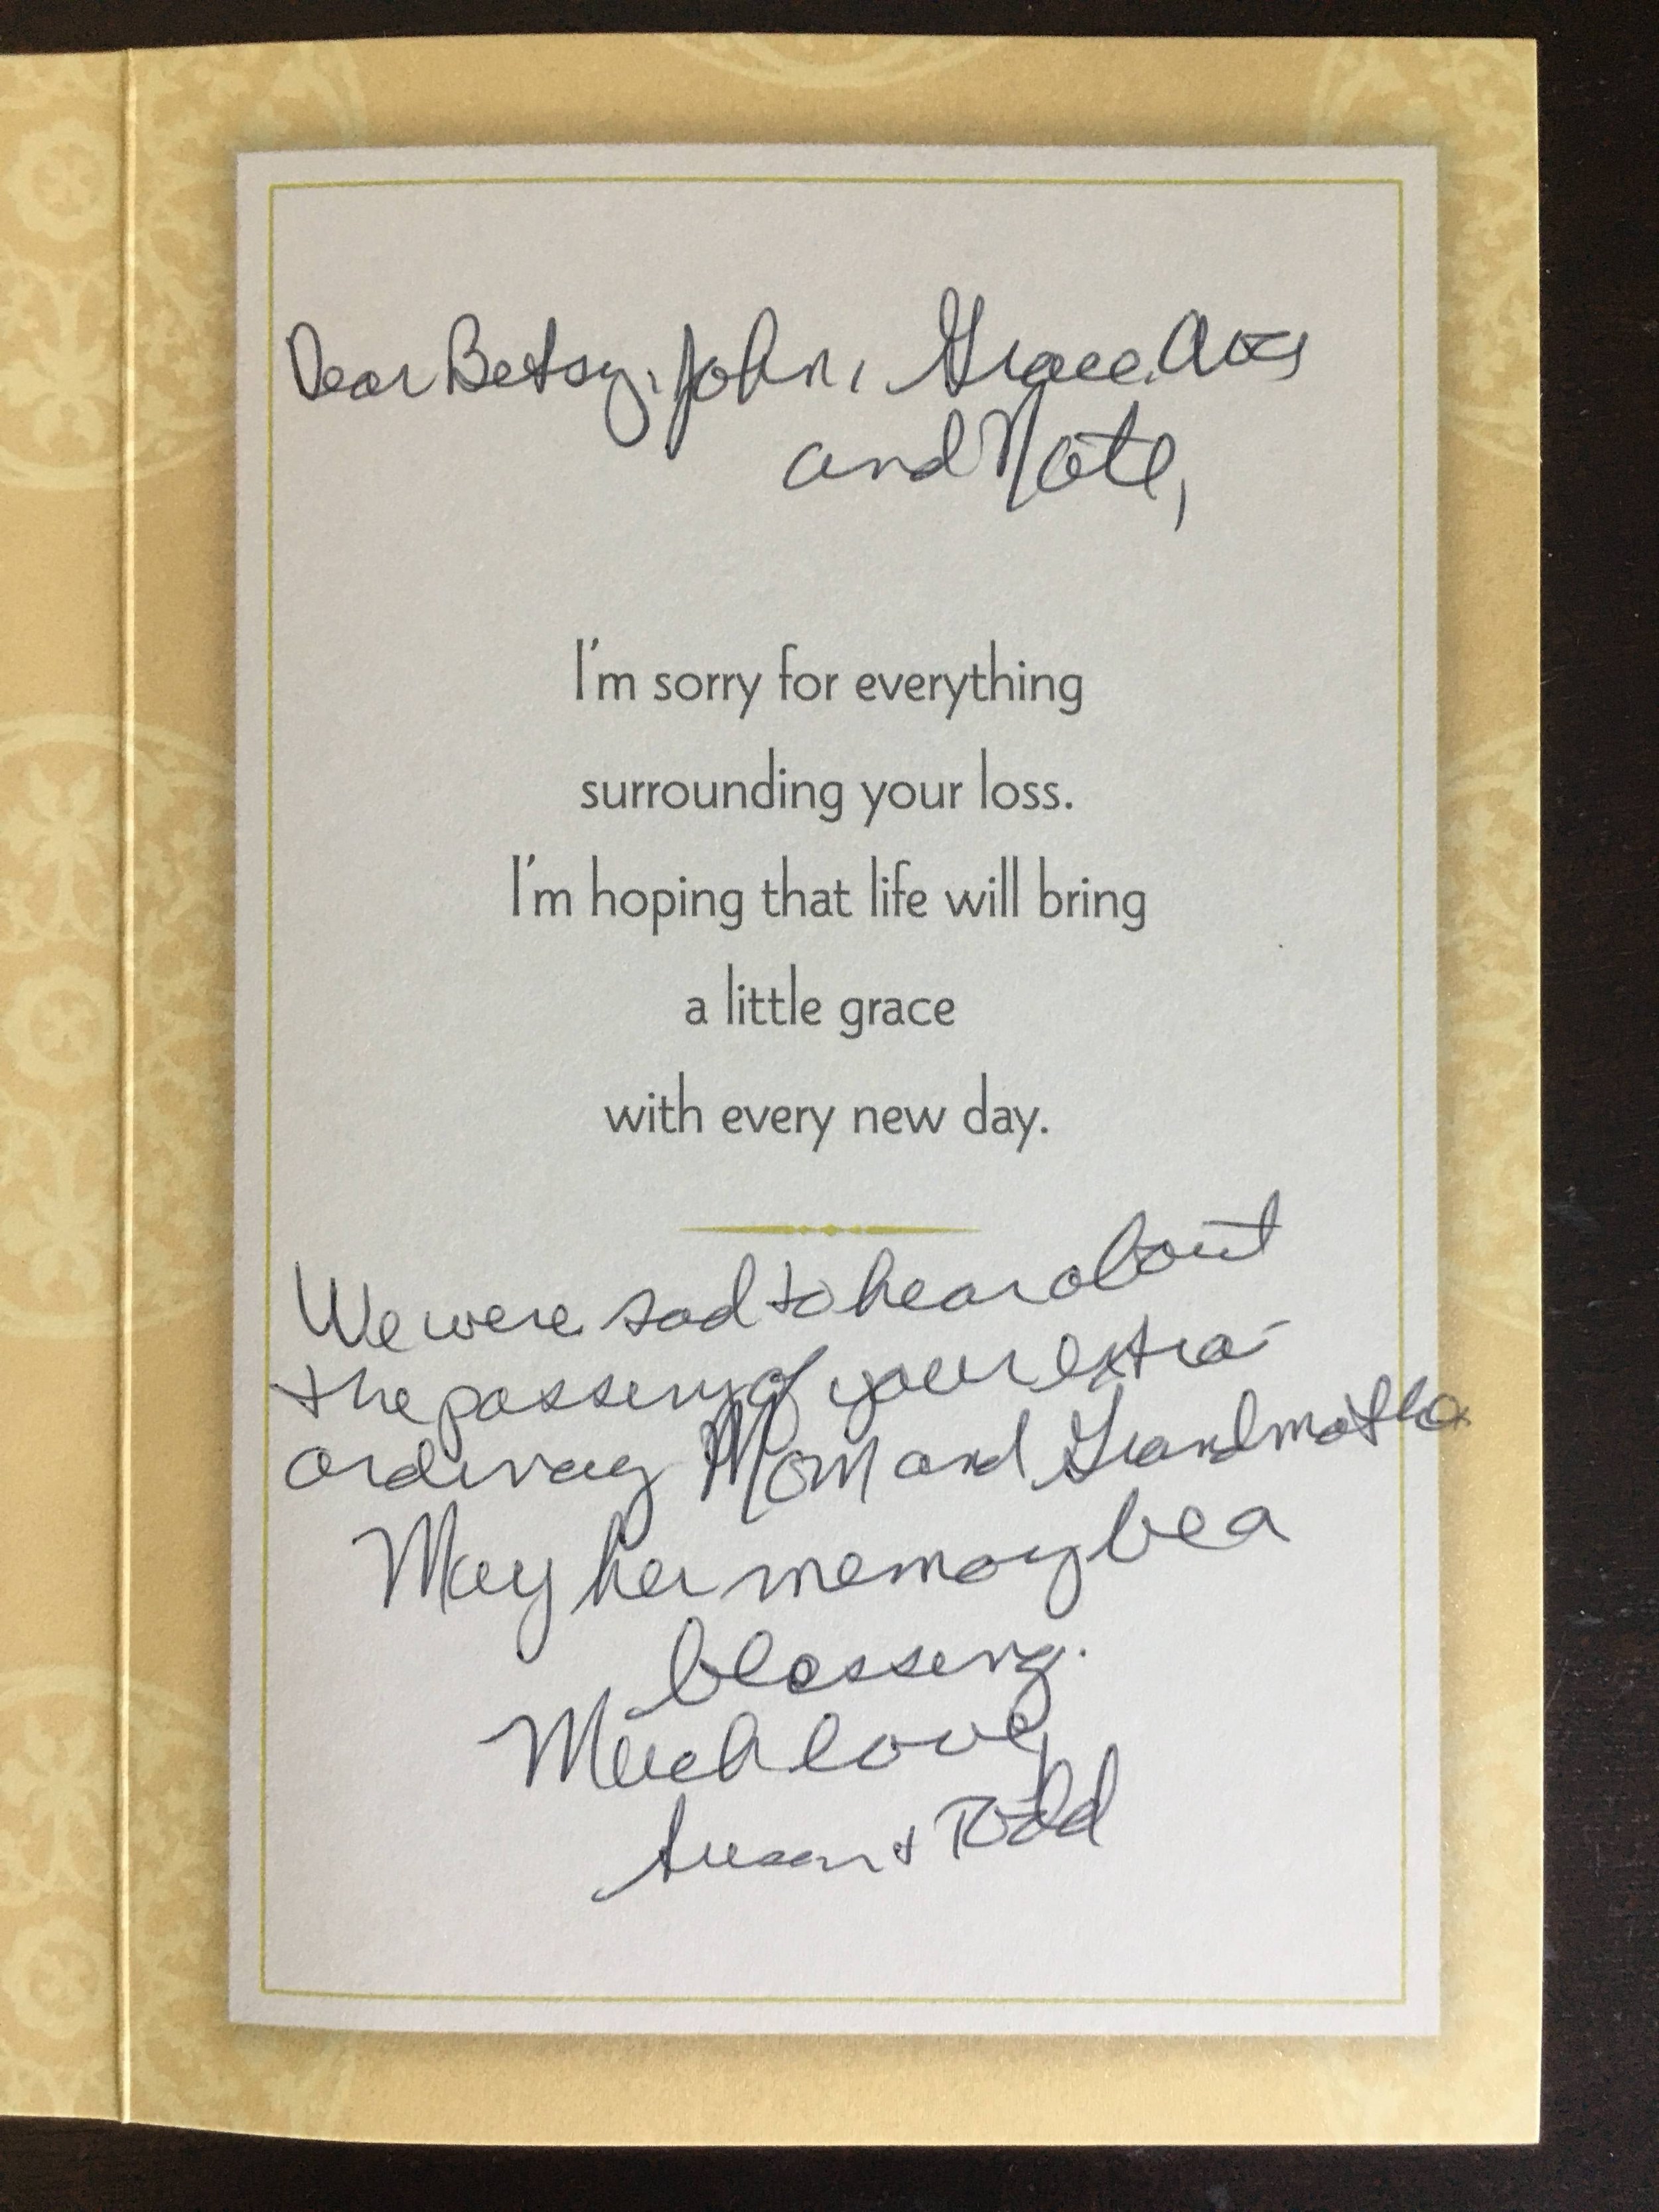 Dear Betsy, John, Grace,
and Nate,
I'm sorry for everything
surrounding your loss.
I'm hoping that life will bring
a little grace
with every new day.
We were sad to hear about
the passing of your extra-
ordinary Mom and Grandmother
May her memory be a
blessing.
Much love,
Susan + Todd